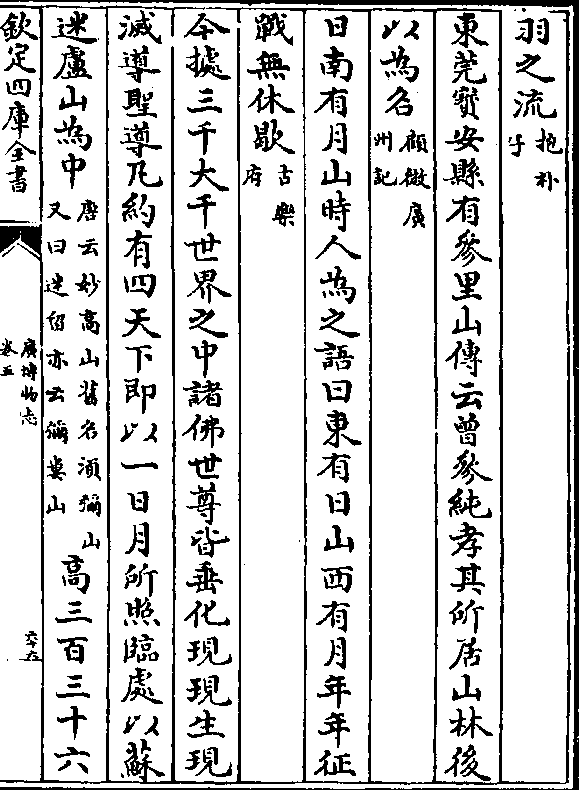 羽之流抱朴子
東莞寳安縣有參里山傳云曾參純孝其所居山林後
以為名顧微廣州記
日南有月山時人為之語曰東有日山西有月年年征
戰無休歇古樂府
今據三千大千世界之中諸佛世尊皆垂化現現生現
滅導聖導凡約有四天下即以一日月所照臨處以蘇
迷盧山為中唐云妙高山舊名須彌山又曰迷留亦云彌婁山高三百三十六
欽定四庫全書
廣博物志
卷五
六十五